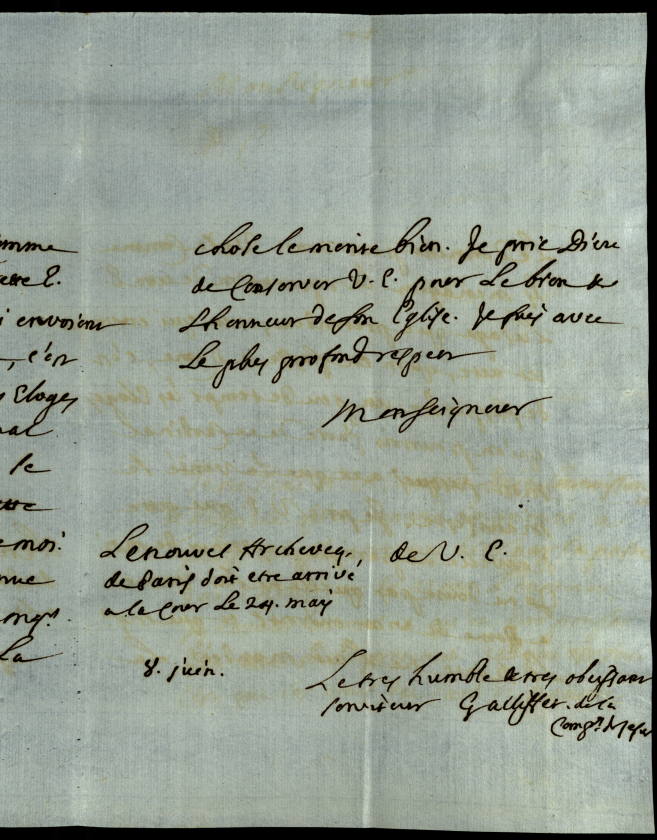 omme
ette E.
i envoient
, c'est
s Eloges
nal
le
ette
e moi.
nue
La
chose le merite bien. Je prie Dieu
de Conserver V. E. pour Le bien &
L'honneur de son Eglise. Je suis avec
Le plus profond respect
Monseigneur
Le nouvel Archeveq.
de Paris doit etre arrivé
a la Cour Le 24. may
de V. E.
8. juin.
Le tres humble & tres obeissant
serviteur Galliffet. de la
Comp.e de Jesus